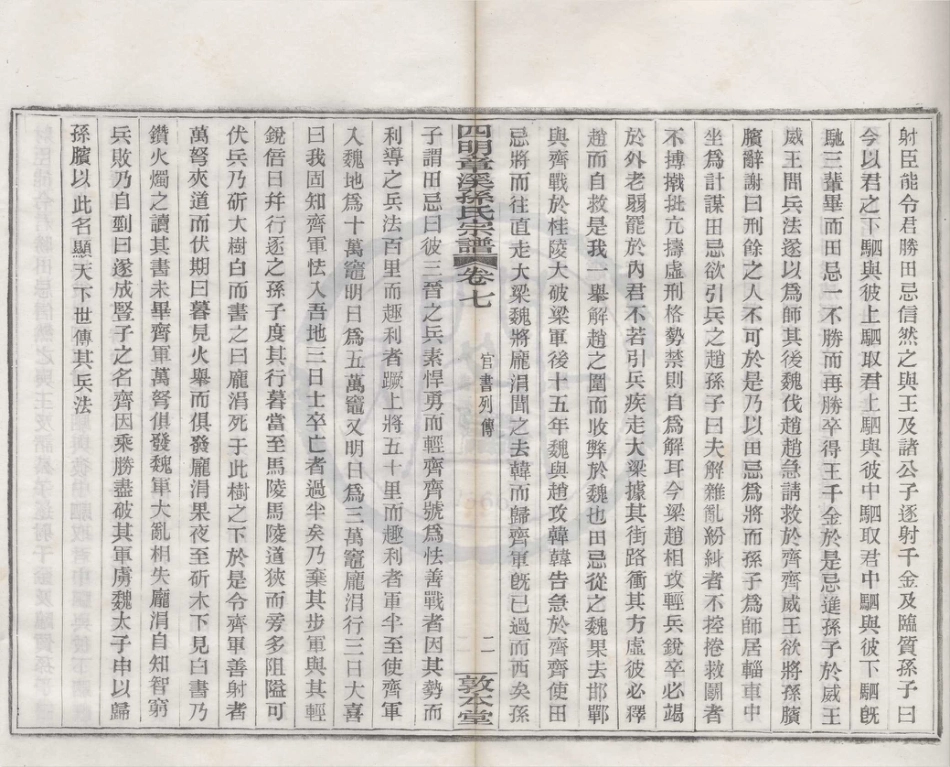 射臣能令君勝田忌信然之與王及諸公子逐射千金及臨質孫子曰
今以君之下駟與彼上駟取君上駟與彼中駟取君中駟與彼下駟旣
馳三輩畢而田忌一不勝而再勝卒得王千金於是忌進孫子於威王
威王問兵法遂以爲師其後魏伐趙趙急請救於齊齊威王欲將孫臏
臏辭謝曰刑餘之人不可於是乃以田忌爲將而孫子爲師居輜車中
坐爲計謀田忌欲引兵之趙孫子曰夫解雜亂紛糾者不控捲救鬬者
不搏撠批亢擣虛形格勢禁則自爲解耳今梁趙相攻輕兵銳卒必竭
於外老弱罷於內君不若引兵疾走大梁據其街路衝其方虛彼必釋
趙而自救是我一舉解趙之圍而收弊於魏也田忌從之魏果去邯鄲
與齊戰於桂陵大破梁軍後十五年魏與趙攻韓韓告急於齊齊使田
忌將而往直走大梁魏將龐涓聞之去韓而歸齊軍旣已過而西矣孫
四明章溪孫氏宗譜 卷七 官書列傳 二一 敦本堂
子謂田忌曰彼三晉之兵素悍勇而輕齊齊號爲怯善戰者因其勢而
利導之兵法百里而趣利者蹶上將五十里而趣利者軍半至使齊軍
入魏地爲十萬竈明日爲五萬竈又明日爲三萬竈龐涓行三日大喜
曰我固知齊軍怯入吾地三日士卒亡者過半矣乃棄其步軍與其輕
銳倍日幷行逐之孫子度其行暮當至馬陵馬陵道狹而旁多阻隘可
伏兵乃斫大樹白而書之曰龐涓死于此樹之下於是令齊軍善射者
萬弩夾道而伏期曰暮見火舉而俱發龐涓果夜至斫木下見白書乃
鑽火燭之讀其書未畢齊軍萬弩俱發魏軍大亂相失龐涓自知智窮
兵敗乃自剄曰遂成豎子之名齊因乘勝盡破其軍虜魏太子申以歸
孫臏以此名顯天下世傳其兵法